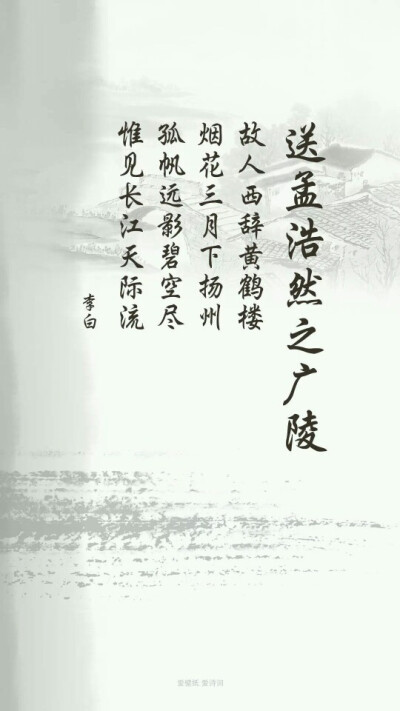 送孟浩然之广陵
故人西辞黄鹤楼
烟花三月下扬州
孤帆远影碧空尽
惟见长江天际流
李白